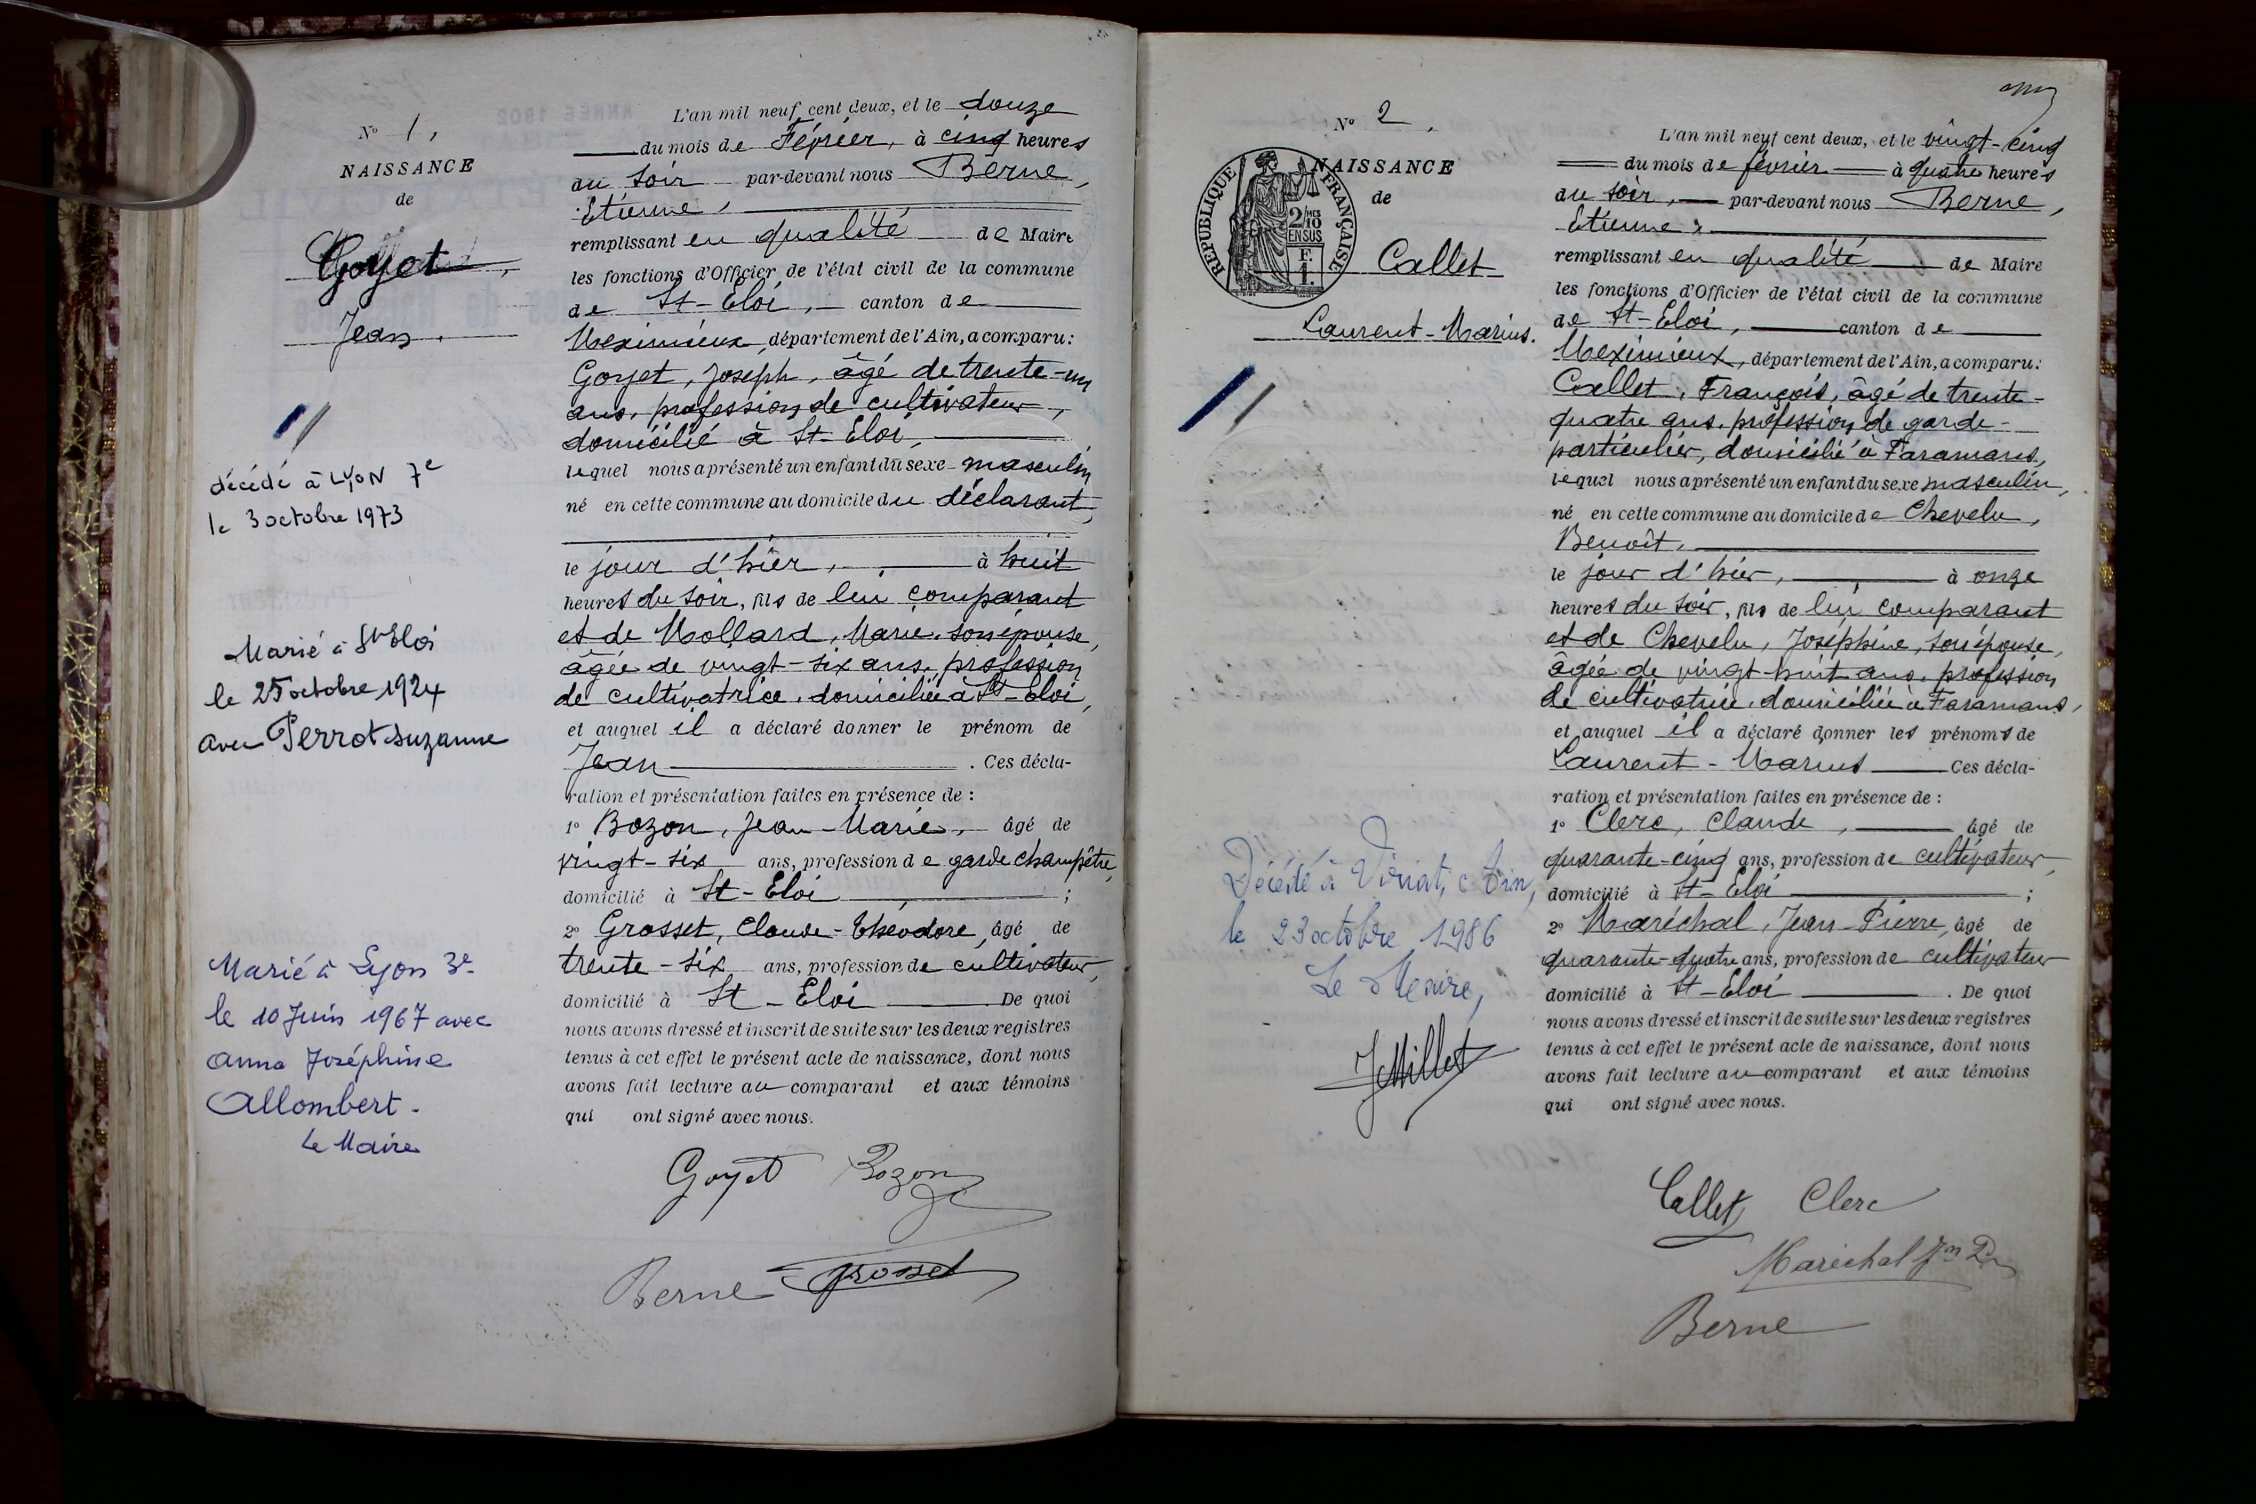 N° 1,
NAISSANCE
de
Goyet
Jean.
décédé à LYON 7e
le 3 octobre 1973
Marié à St Eloi
le 25 octobre 1924
avec Perrot Suzanne
Marié à Lyon 3e
le 10 Juin 1967 avec
Anna Joséphine
Allombert.
Le Maire
L'an mil neuf cent deux, et le douze
du mois de Février, à cinq heures
du soir par-devant nous Berne,
Etienne,
remplissant en qualité de Maire
les fonctions d'Officier de l'état civil de la commune
de St-Eloi, canton de
Meximieux, département de l'Ain, a comparu:
Goyet, Joseph, âgé de trente-un
ans, profession de cultivateur,
domicilié à St-Eloi,
lequel nous a présenté un enfant du sexe masculin
né en cette commune au domicile du déclarant,
le jour d'hier, à huit
heures du soir, fils de lui comparant
et de Mollard, Marie, son épouse,
âgée de vingt-six ans, profession
de cultivatrice, domiciliée à St-Eloi,
et auquel il a déclaré donner le prénom de
Jean . Ces décla-
ration et présentation faites en présence de :
1° Bozon, Jean-Marie, âgé de
vingt-six ans, profession de garde champêtre,
domicilié à St-Eloi ;
2° Grosset, Claude-Théodore, âgé de
trente-six ans, profession de cultivateur,
domicilié à St-Eloi De quoi
nous avons dressé et inscrit de suite sur les deux registres
tenus à cet effet le présent acte de naissance, dont nous
avons fait lecture au comparant et aux témoins
qui ont signé avec nous.
Goyet Bozon
Berne Grosset
N° 2.
NAISSANCE
de
REPUBLIQUE FRANÇAISE
2/10 MES
EN SUS
F.
1.
Callet
Laurent-Marius.
Décédé à Viriat, Ain,
le 23 octobre 1986
Le Maire,
JMillet
L'an mil neuf cent deux, et le vingt-cinq
du mois de février à quatre heures
du soir, par-devant nous Berne,
Etienne,
remplissant en qualité de Maire
les fonctions d'Officier de l'état civil de la commune
de St-Eloi, canton de
Meximieux, département de l'Ain, a comparu:
Callet, François, âgé de trente-
quatre ans, profession de garde-
particulier, domicilié à Faramans,
lequel nous a présenté un enfant du sexe masculin,
né en cette commune au domicile de Chevelu,
Benoît,
le jour d'hier, à onze
heures du soir, fils de lui comparant
et de Chevelu, Joséphine, son épouse,
âgée de vingt-huit ans, profession
de cultivatrice, domiciliée à Faramans,
et auquel il a déclaré donner les prénoms de
Laurent-Marius Ces décla-
ration et présentation faites en présence de :
1° Clerc, Claude, âgé de
quarante-cinq ans, profession de cultivateur,
domicilié à St-Eloi ;
2° Maréchal, Jean-Pierre, âgé de
quarante-quatre ans, profession de cultivateur
domicilié à St-Eloi . De quoi
nous avons dressé et inscrit de suite sur les deux registres
tenus à cet effet le présent acte de naissance, dont nous
avons fait lecture au comparant et aux témoins
qui ont signé avec nous.
Callet Clerc
Maréchal Jn Pre
Berne